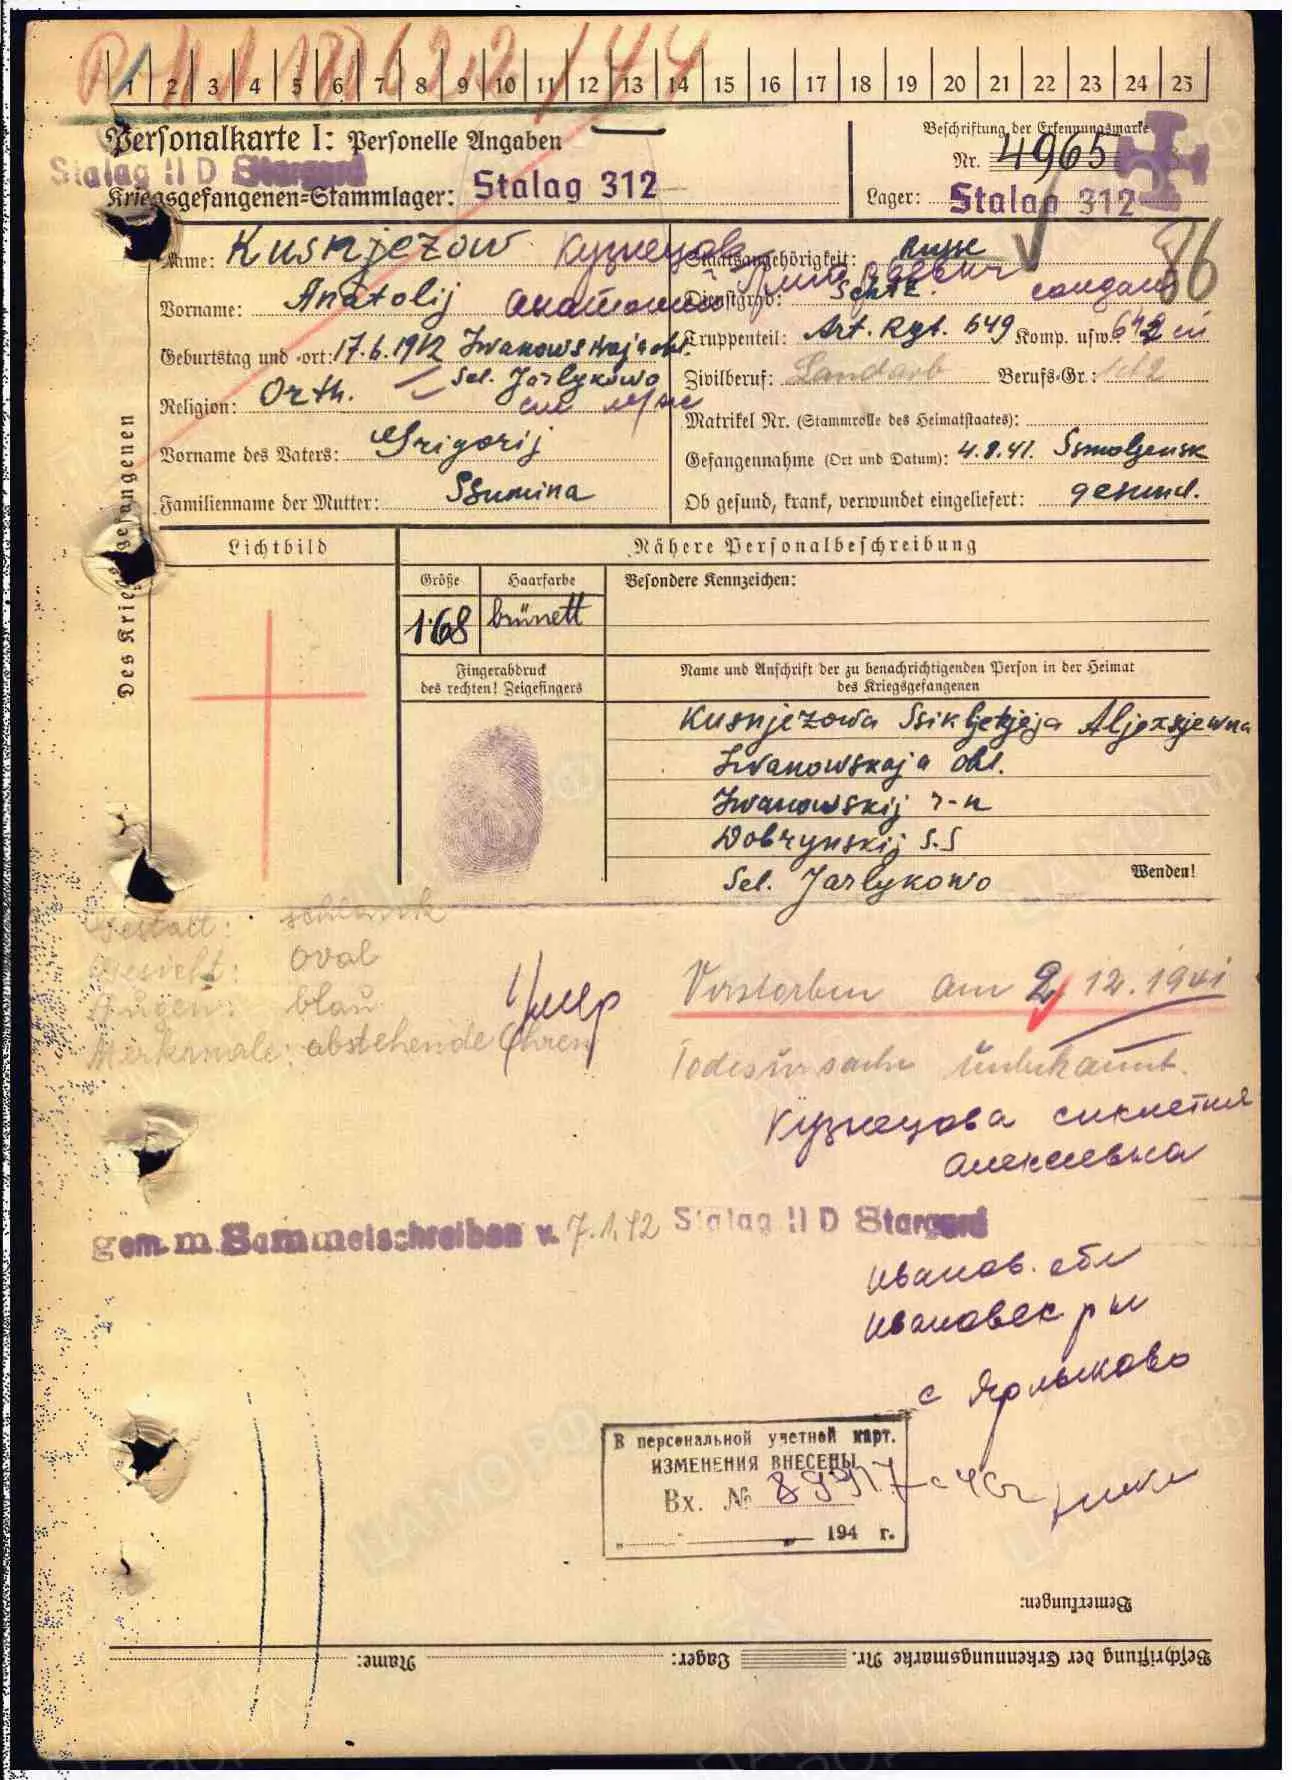 1 2 3 4 5 6 7 8 9 10 11 12 13 14 15 16 17 18 19 20 21 22 23 24 25
Personalkarte I: Personelle Angaben
Beschriftung der Erkennungsmarke
Nr. 4965
Stalag II D Stargard
Kriegsgefangenen-Stammlager: Stalag 312
Lager: Stalag 312
86
Des Kriegsgefangenen
Name: Kusnjezow Кузнецов
Vorname: Anatolij Анатолий
Geburtstag und -ort: 17.6.1912 Iwanowskaja obl.
Sel. Jarlykowo
Religion: Orth.
Vorname des Vaters: Grigorij
Familienname der Mutter: Ssumina
Staatsangehörigkeit: Russe
Dienstgrad: Schtz. солдат
Truppenteil: Art. Rgt. 649 Komp. usw.
Zivilberuf: Landarb Berufs-Gr.:
Matrikel Nr. (Stammrolle des Heimatstaates):
Gefangennahme (Ort und Datum): 4.8.41. Ssmoljensk
Ob gesund, krank, verwundet eingeliefert: gesund.
Lichtbild
Nähere Personalbeschreibung
Größe
1.68
Haarfarbe
brünett
Besondere Kennzeichen:
Fingerabdruck
des rechten! Zeigefingers
Name und Anschrift der zu benachrichtigenden Person in der Heimat
des Kriegsgefangenen
Kusnjezowa Aljexsjewna
Iwanowskaja obl.
Iwanowskij r-n
Dobrynskij S.S
Sel. Jarlykowo
Wenden!
Gestalt: schlank
Gesicht: oval
Augen: blau
Merkmale: abstehende Ohren
Умер
Verstorben am 2.12.1941
Todesursache unbekannt.
Кузнецова
Алексеевна
gem. m. Sammelschreiben v. 7.1.42 Stalag II D Stargard
Иванов. обл
Ивановск р н
с Ярлыково
В персональной учетной карт.
ИЗМЕНЕНИЯ ВНЕСЕНЫ
Вх. №
„ “ 194 г.
Bemerkungen:
Beschriftung der Erkennungsmarke Nr. Lager: Name: